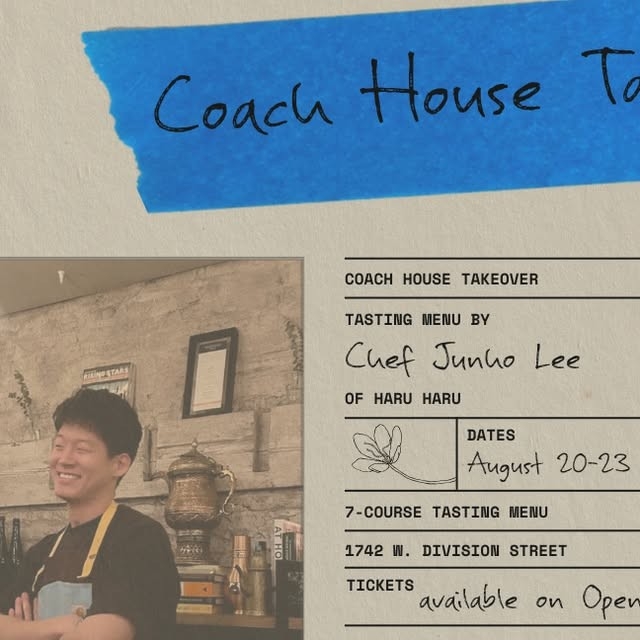 Coach House Ta
COACH HOUSE TAKEOVER
TASTING MENU BY
Chef Junho Lee
OF HARU HARU
DATES
August 20-23
7-COURSE TASTING MENU
1742 W. DIVISION STREET
TICKETS
available on Open
RISING STARS